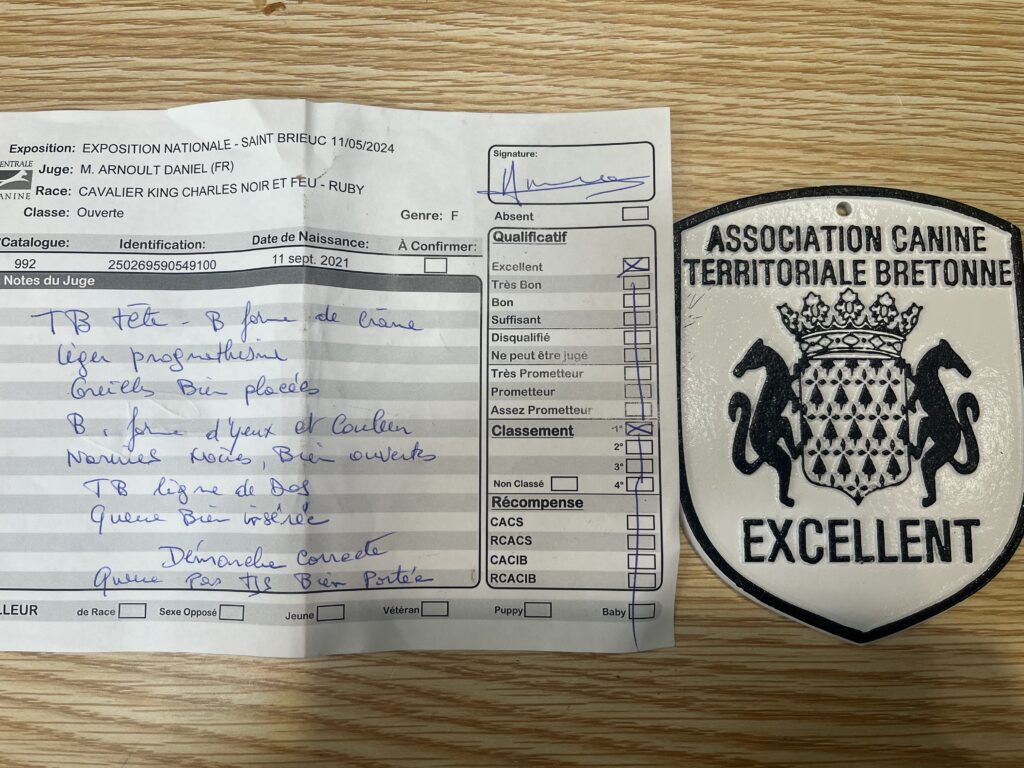 Exposition: EXPOSITION NATIONALE - SAINT BRIEUC 11/05/2024
ENTRALE
ANINE
Juge: M. ARNOULT DANIEL (FR)
Race: CAVALIER KING CHARLES NOIR ET FEU - RUBY
Classe: Ouverte
Genre: F
Catalogue: Identification: Date de Naissance: À Confirmer:
992 250269590549100 11 sept. 2021
Notes du Juge
TB tête - B forme de Crâne
léger prognathisme
Oreilles Bien placées
B. forme d'yeux et Couleur
Narines Noires, Bien ouvertes
TB ligne de Dos
Queue Bien insérée
Démarche correcte
Queue Pas tjs Bien Portée
Signature:
Absent
Qualificatif
Excellent
Très Bon
Bon
Suffisant
Disqualifié
Ne peut être jugé
Très Prometteur
Prometteur
Assez Prometteur
Classement 1°
2°
3°
Non Classé 4°
Récompense
CACS
RCACS
CACIB
RCACIB
LLEUR de Race Sexe Opposé Jeune Vétéran Puppy Baby
ASSOCIATION CANINE
TERRITORIALE BRETONNE
EXCELLENT